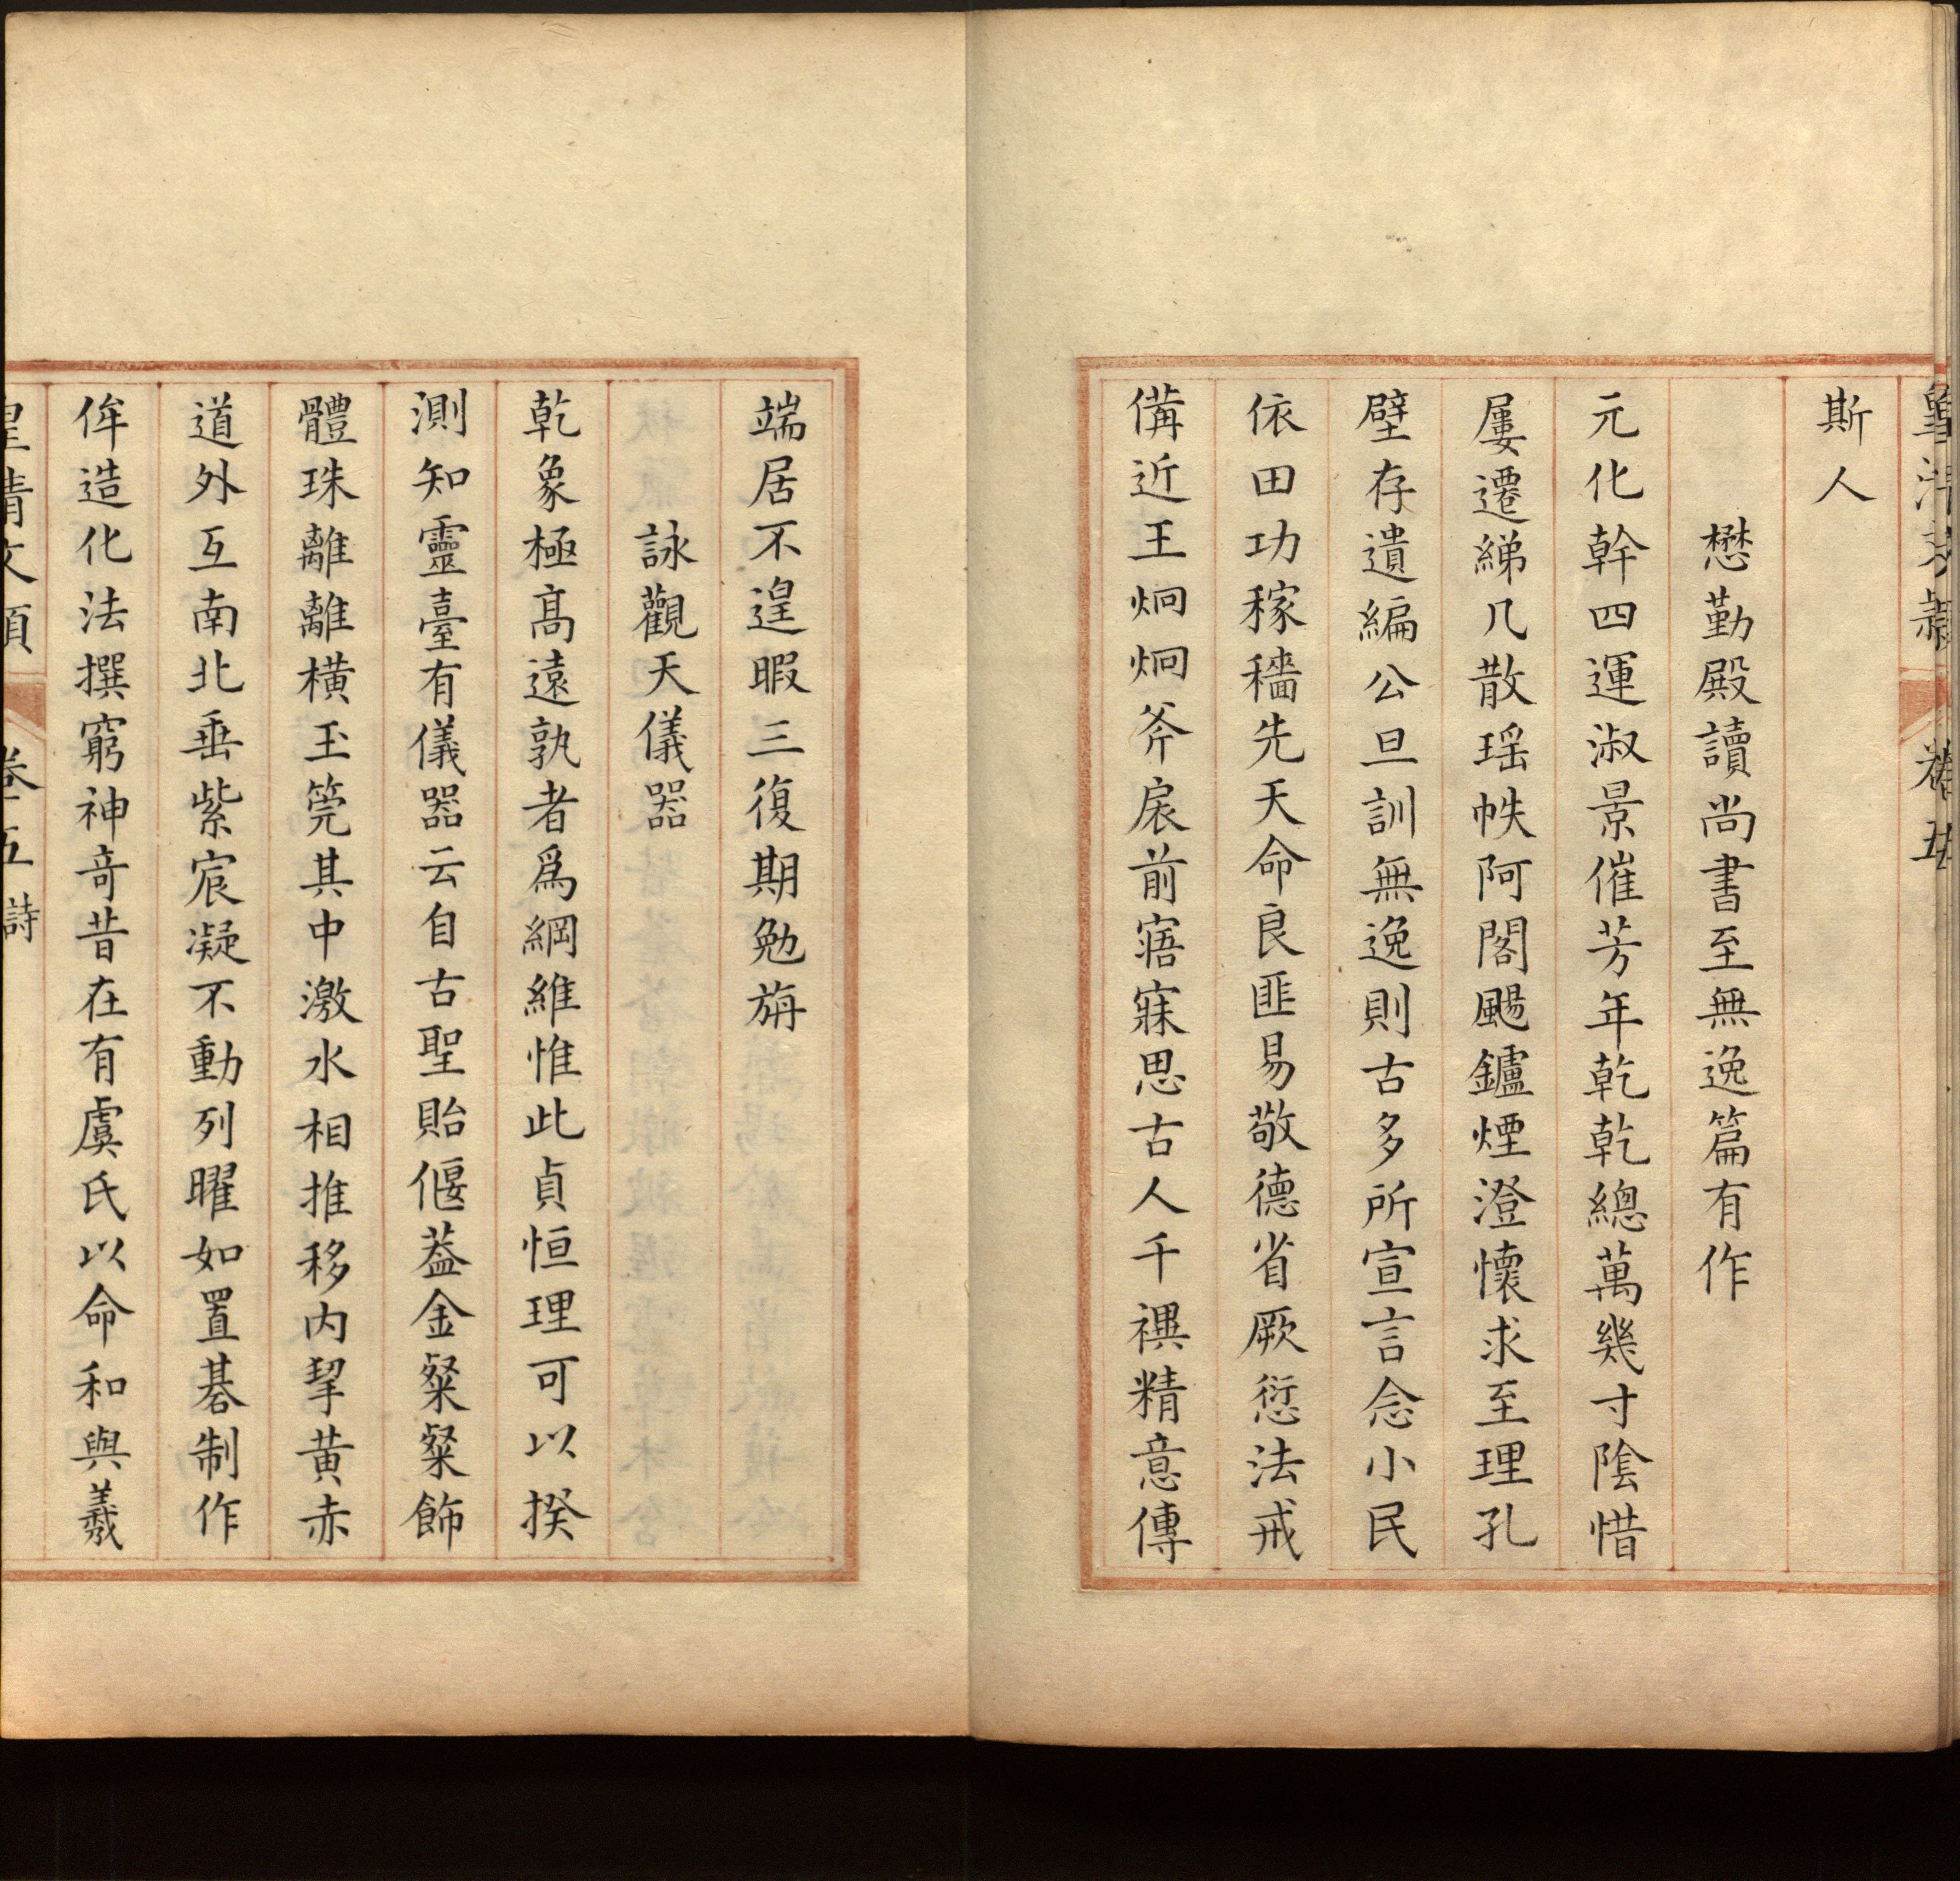 斯人
懋勤殿讀尚書至無逸篇有作
元化幹四運淑景催芳年乾乾總萬幾寸陰惜
屢遷綈几散瑶帙阿閣颺鑪煙澄懷求至理孔
壁存遺編公旦訓無逸則古多所宣言念小民
依田功稼穡先天命良匪易敬德省厥愆法戒
備近王炯炯斧扆前寤寐思古人千禩精意傳
端居不遑暇三復期勉旃
詠觀天儀器
乾象極髙遠孰者爲綱維惟此貞恒理可以揆
測知靈臺有儀器云自古聖貽偃葢金粲粲飾
體珠離離橫玉筦其中激水相推移内挈黄赤
道外互南北垂紫宸凝不動列曜如置碁制作
侔造化法撰窮神竒昔在有虞氏以命和與羲
皇清文頴 卷五 詩